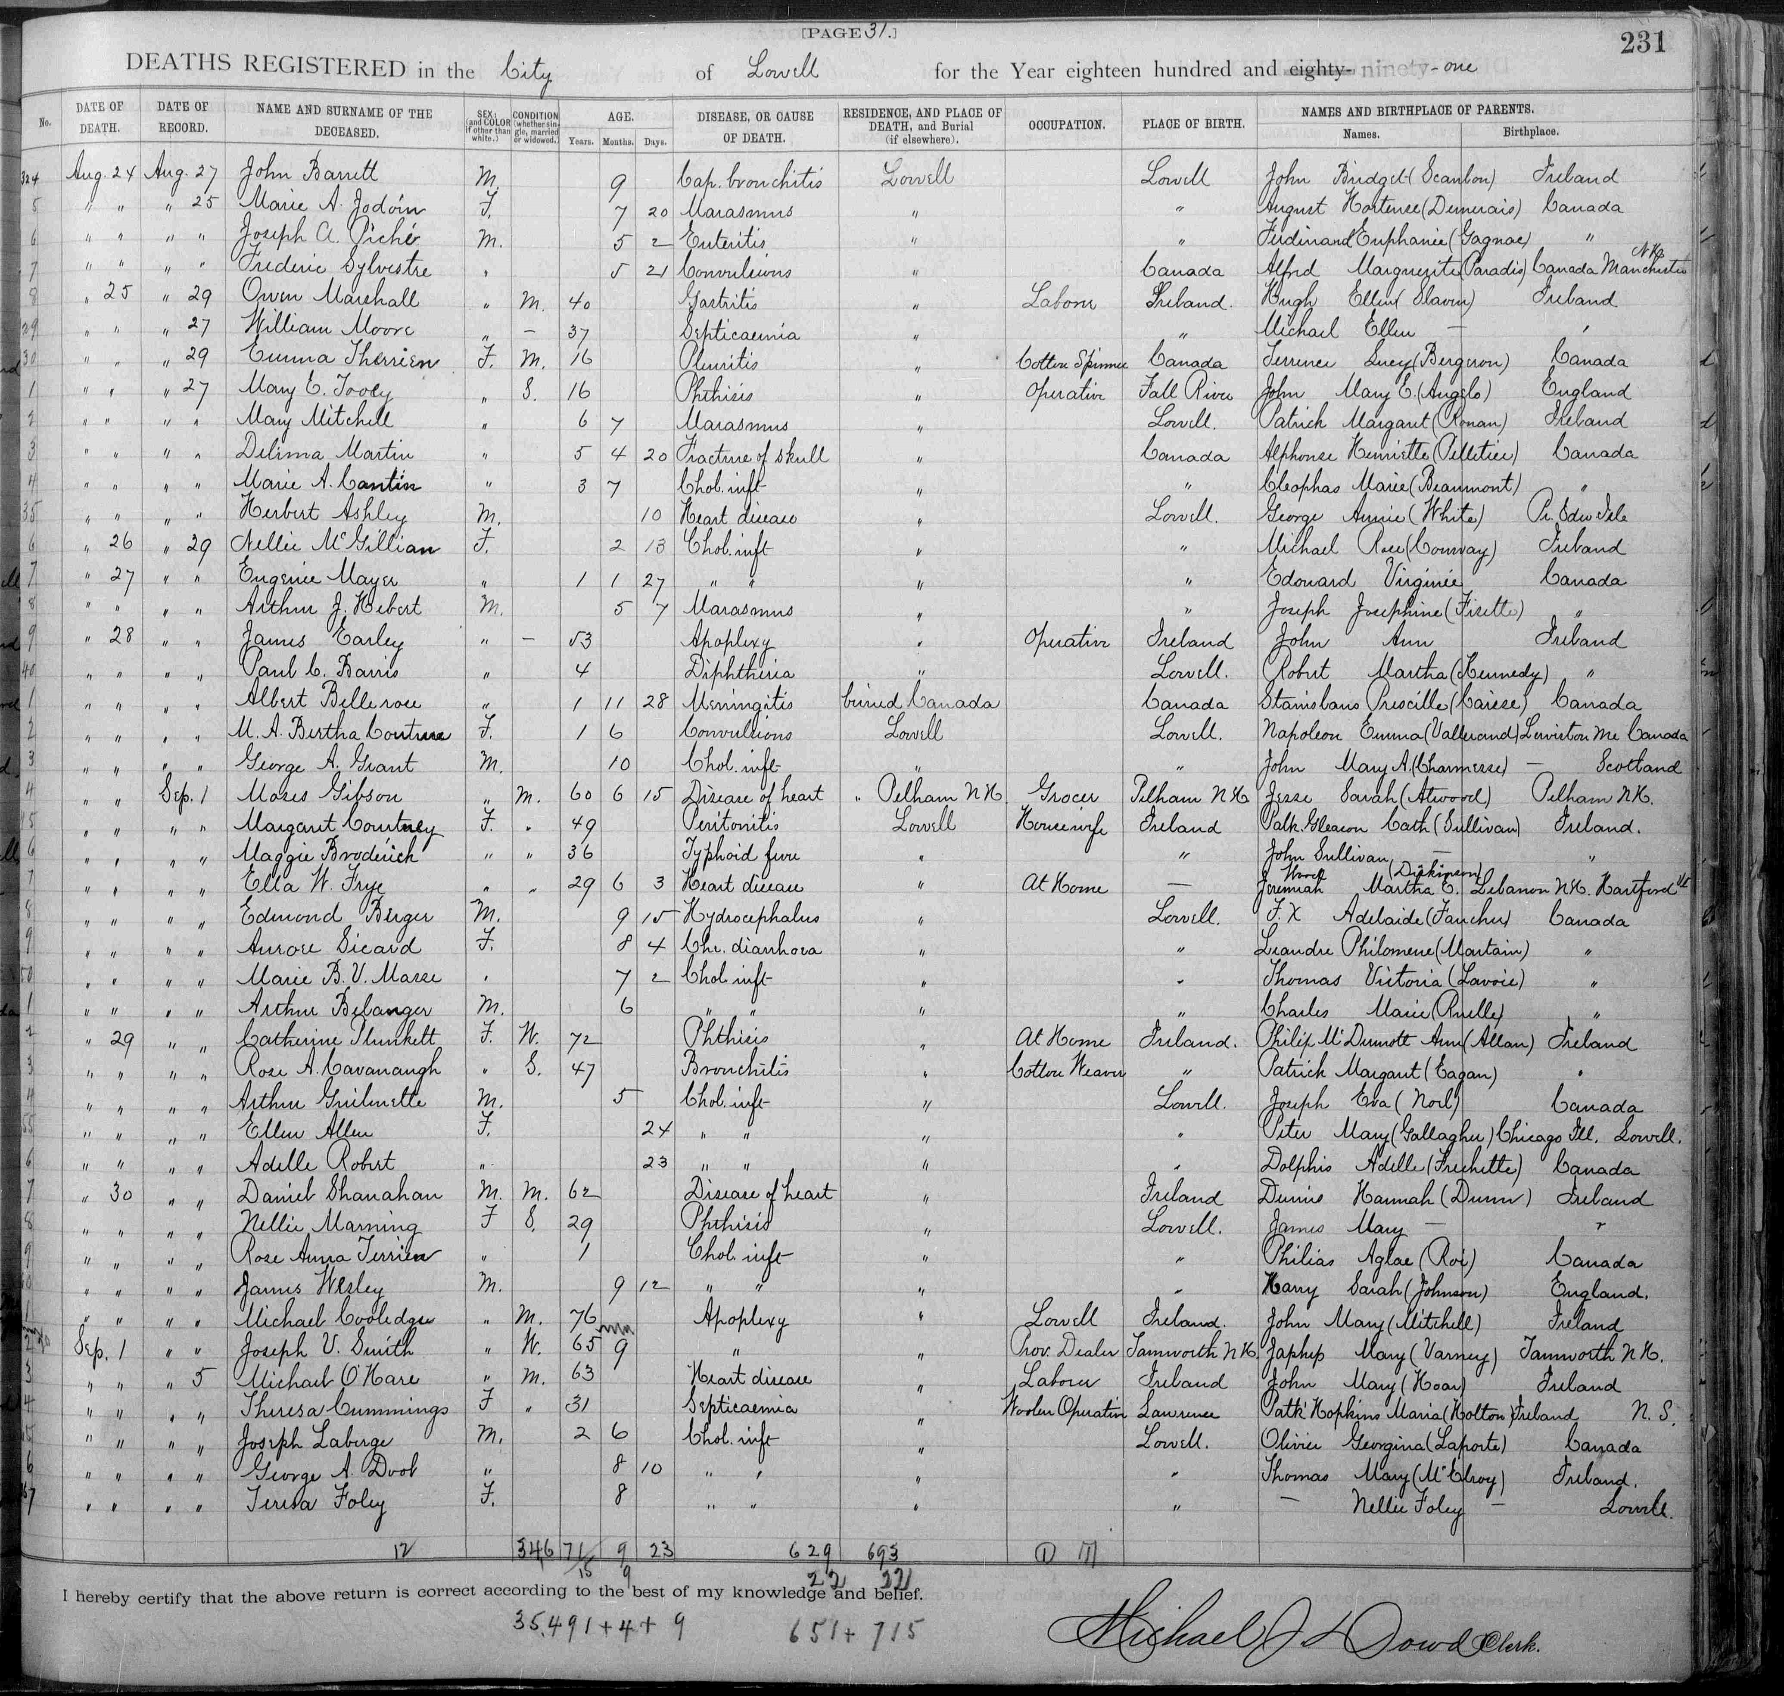 [PAGE 31.]
231
DEATHS REGISTERED in the City of Lowell for the Year eighteen hundred and eighty- ninety-one
No. DATE OF DEATH. DATE OF RECORD. NAME AND SURNAME OF THE DECEASED. SEX; (and COLOR if other than white.) CONDITION (whether single, married or widowed.) AGE. Years. Months. Days. DISEASE, OR CAUSE OF DEATH. RESIDENCE, AND PLACE OF DEATH, and Burial (if elsewhere). OCCUPATION. PLACE OF BIRTH. NAMES AND BIRTHPLACE OF PARENTS. Names. Birthplace.
324 Aug. 24 Aug. 27 John Barrett M. 9 Cap. bronchitis Lowell Lowell John Bridget (Scanlon) Ireland
5 " " " 25 Marie A. Jodoin F. 7 20 Marasmus " " August Hortense (Demerais) Canada
6 " " " " Joseph A. Piché M. 5 2 Enteritis " " Ferdinand Euphanie (Gagnae) "
7 " " " " Frederic Sylvestre " 5 21 Convulsions " Canada Alfred Marguerite (Paradis) Canada Manchester N.H.
8 " 25 " 29 Owen Marshall " M. 40 Gastritis " Laborer Ireland. Hugh Ellen (Slavin) Ireland
29 " " " 27 William Moore " – 37 Septicaemia " " Michael Ellen – "
30 " " " 29 Emma Therrien F. M. 16 Pleuritis " Cotton Spinner Canada Terrence Lucy (Bergeron) Canada
1 " " " 27 Mary E. Tooey " S. 16 Phthisis " Operative Fall River John Mary E. (Angelo) England
2 " " " " Mary Mitchell " 6 7 Marasmus " Lowell. Patrick Margaret (Ronan) Ireland
3 " " " " Delima Martin " 5 4 20 Fracture of skull " Canada Alphonse Henriette (Pelletier) Canada
4 " " " " Marie A. Cantin " 3 7 Chol. inft " " Cleophas Marie (Beaumont) "
35 " " " " Herbert Ashley M. 10 Heart disease " Lowell. George Annie (White) Pr. Edw Isle
6 " 26 " 29 Nellie McGillian F. 2 13 Chol. inft " " Michael Rose (Conway) Ireland
7 " 27 " " Eugenie Mayer " 1 1 27 " " " " Edouard Virginie Canada
8 " " " " Arthur J. Hebert M. 5 7 Marasmus " " Joseph Josephine (Fisette) "
9 " 28 " " James Earley " – 53 Apoplexy " Operative Ireland John Ann Ireland
40 " " " " Paul C. Barris " 4 Diphtheria " Lowell. Robert Martha (Kennedy) "
1 " " " " Albert Bellerose " 1 11 28 Meningitis buried Canada Canada Stanislaus Prescille (Cariese) Canada
2 " " " " M. A. Bertha Couture F. 1 6 Convulsions Lowell Lowell. Napoleon Emma (Vallerand) Lewiston Me Canada
3 " " " " George A. Grant M. 10 Chol. inft " " John Mary A. (Charmesse) – Scotland
4 " " Sep. 1 Moses Gibson " M. 60 6 15 Disease of heart " Pelham N H Grocer Pelham N H Jesse Sarah (Atwood) Pelham N.H.
45 " " " " Margaret Courtney F. " 49 Peritonitis Lowell Housewife Ireland Patk. Gleason Cath (Sullivan) Ireland.
6 " " " " Maggie Broderick " " 36 Typhoid fever " " John Sullivan – "
7 " " " " Ella W. Frye " " 29 6 3 Heart disease " At Home – Jeremiah Wood Martha E. (Dickinson) Lebanon N.H. Hartford Vt
8 " " " " Edmond Berger M. 9 15 Hydrocephalus " Lowell. F. X Adelaide (Faucher) Canada
9 " " " " Aurore Sicard F. 8 4 Chr. diarrhoea " Leandre Philomene (Martain) "
50 " " " " Marie B. V. Masse " 7 2 Chol. inft " " Thomas Victoria (Lavoie) "
1 " " " " Arthur Belanger M. 6 " " " " Charles Marie (Ruelle) "
2 " 29 " " Catherine Plunkett F. W. 72 Phthisis " At Home Ireland. Philip McDermott Ann (Allan) Ireland
3 " " " " Rose A. Cavanaugh " S. 47 Bronchitis " Cotton Weaver " Patrick Margaret (Eagan) "
4 " " " " Arthur Guilmette M. 5 Chol. inft " Lowell. Joseph Eva (Noel) Canada
55 " " " " Ellen Allen F. 24 " " " " Peter Mary (Gallagher) Chicago Ill. Lowell.
6 " " " " Adelle Robert " 23 " " " " Dolphis Adelle (Frechette) Canada
7 " 30 " " Daniel Shanahan M. M. 62 Disease of heart " Ireland Dennis Hannah (Dunn) Ireland
8 " " " " Nellie Manning F S. 29 Phthisis " Lowell. James Mary – "
9 " " " " Rose Anna Terrien " 1 Chol. inft " " Philias Aglae (Roi) Canada
60 " " " " James Wesley M. 9 12 " " " Harry Sarah (Johnson) England.
1 " " " " Michael Cooledge " M. 76 Apoplexy " Lowell Ireland. John Mary (Mitchell) Ireland
2 Sep. 1 " " Joseph V. Smith " W. 65 9 " " Prov. Dealer Tamworth N H. Japhep Mary (Varney) Tamworth N H.
3 " " " 5 Michael O'Hare " M. 63 Heart disease " Laborer Ireland John Mary (Hoar) Ireland
4 " " " " Theresa Cummings F " 31 Septicaemia " Woolen Operative Lawrence Patk Hopkins Maria (Holton) Ireland N. S.
" " " " Joseph Laberge M. 2 6 Chol. inft " Lowell. Olivier Georgina (Laporte) Canada
6 " " " " George A. Dool " 8 10 " " " " Thomas Mary (McElroy) Ireland.
367 " " " " Teresa Foley F. 8 " " " " – Nellie Foley – Lowell.
12 346 71 9 23 629 693 1
15 9 22 22
I hereby certify that the above return is correct according to the best of my knowledge and belief.
35.491 + 4 + 9 651 + 715
Michael J Dowd Clerk.